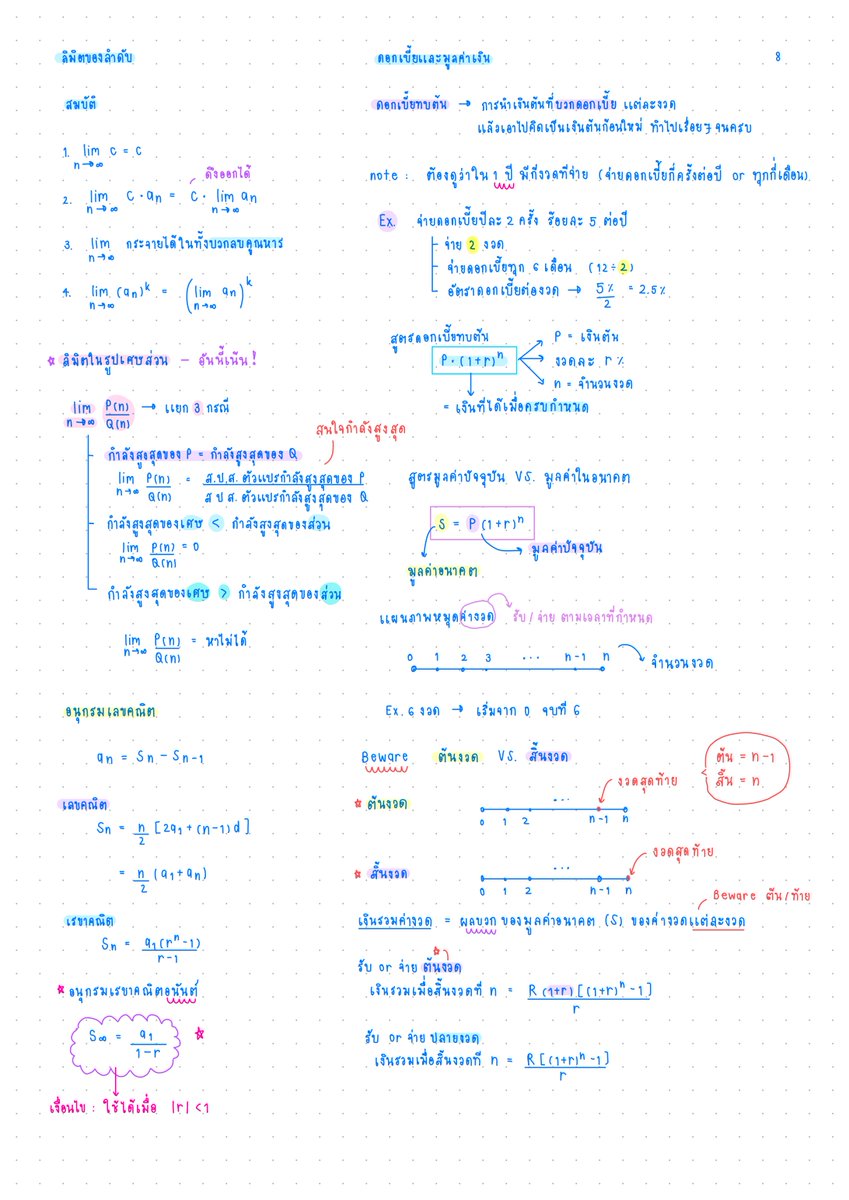 ลิมิตของลำดับ
สมบัติ
1. lim n→∞ c = c
ดึงออกได้
2. lim n→∞ c・an = c・lim n→∞ an
3. lim n→∞ กระจายได้ในทั้งบวกลบคูณหาร
4. lim n→∞ (an)^k = (lim n→∞ an)^k
☆ ลิมิตในรูปเศษส่วน – อันนี้เน้น!
lim n→∞ P(n)/Q(n) → แยก 3 กรณี
สนใจกำลังสูงสุด
กำลังสูงสุดของ P = กำลังสูงสุดของ Q
lim n→∞ P(n)/Q(n) = ส.ป.ส. ตัวแปรกำลังสูงสุดของ P / ส ป ส. ตัวแปรกำลังสูงสุดของ Q
กำลังสูงสุดของเศษ < กำลังสูงสุดของส่วน
lim n→∞ P(n)/Q(n) = 0
กำลังสูงสุดของเศษ > กำลังสูงสุดของส่วน
lim n→∞ P(n)/Q(n) = หาไม่ได้
อนุกรมเลขคณิต
an = Sn – Sn-1
เลขคณิต
Sn = n/2 [2a1 + (n-1)d]
= n/2 (a1 + an)
เรขาคณิต
Sn = a1(r^n – 1)/r-1
☆ อนุกรมเรขาคณิตอนันต์
S∞ = a1/1-r ☆
เงื่อนไข : ใช้ได้เมื่อ |r| < 1
ดอกเบี้ยและมูลค่าเงิน
8
ดอกเบี้ยทบต้น → การนำเงินต้นที่บวกดอกเบี้ย แต่ละงวด
แล้วเอาไปคิดเป็นเงินต้นก้อนใหม่ ทำไปเรื่อยๆ จนครบ
note : ต้องดูว่าใน 1 ปี มีกี่งวดที่จ่าย (จ่ายดอกเบี้ยกี่ครั้งต่อปี or ทุกกี่เดือน)
Ex. จ่ายดอกเบี้ยปีละ 2 ครั้ง ร้อยละ 5 ต่อปี
จ่าย 2 งวด
จ่ายดอกเบี้ยทุก 6 เดือน (12÷2)
อัตราดอกเบี้ยต่องวด → 5%/2 = 2.5%
สูตรดอกเบี้ยทบต้น
P・(1+r)^n
P = เงินต้น
งวดละ r%
n = จำนวนงวด
= เงินที่ได้เมื่อครบกำหนด
สูตรมูลค่าปัจจุบัน VS. มูลค่าในอนาคต
S = P(1+r)^n
มูลค่าปัจจุบัน
มูลค่าอนาคต
แผนภาพหมุดค่างวด รับ/จ่าย ตามเวลาที่กำหนด
0 1 2 3 ... n-1 n
จำนวนงวด
Ex. 6 งวด → เริ่มจาก 0 จบที่ 6
Beware ต้นงวด VS. สิ้นงวด
ต้น = n-1
สิ้น = n
งวดสุดท้าย
☆ ต้นงวด
0 1 2 ... n-1 n
งวดสุดท้าย
☆ สิ้นงวด
0 1 2 ... n-1 n
Beware ต้น/ท้าย
เงินรวมค่างวด = ผลบวก ของมูลค่าอนาคต (S) ของค่างวดแต่ละงวด
☆
รับ or จ่าย ต้นงวด
เงินรวมเมื่อสิ้นงวดที่ n = R(1+r)[(1+r)^n – 1]/r
รับ or จ่าย ปลายงวด
เงินรวมเมื่อสิ้นงวดที่ n = R[(1+r)^n – 1]/r